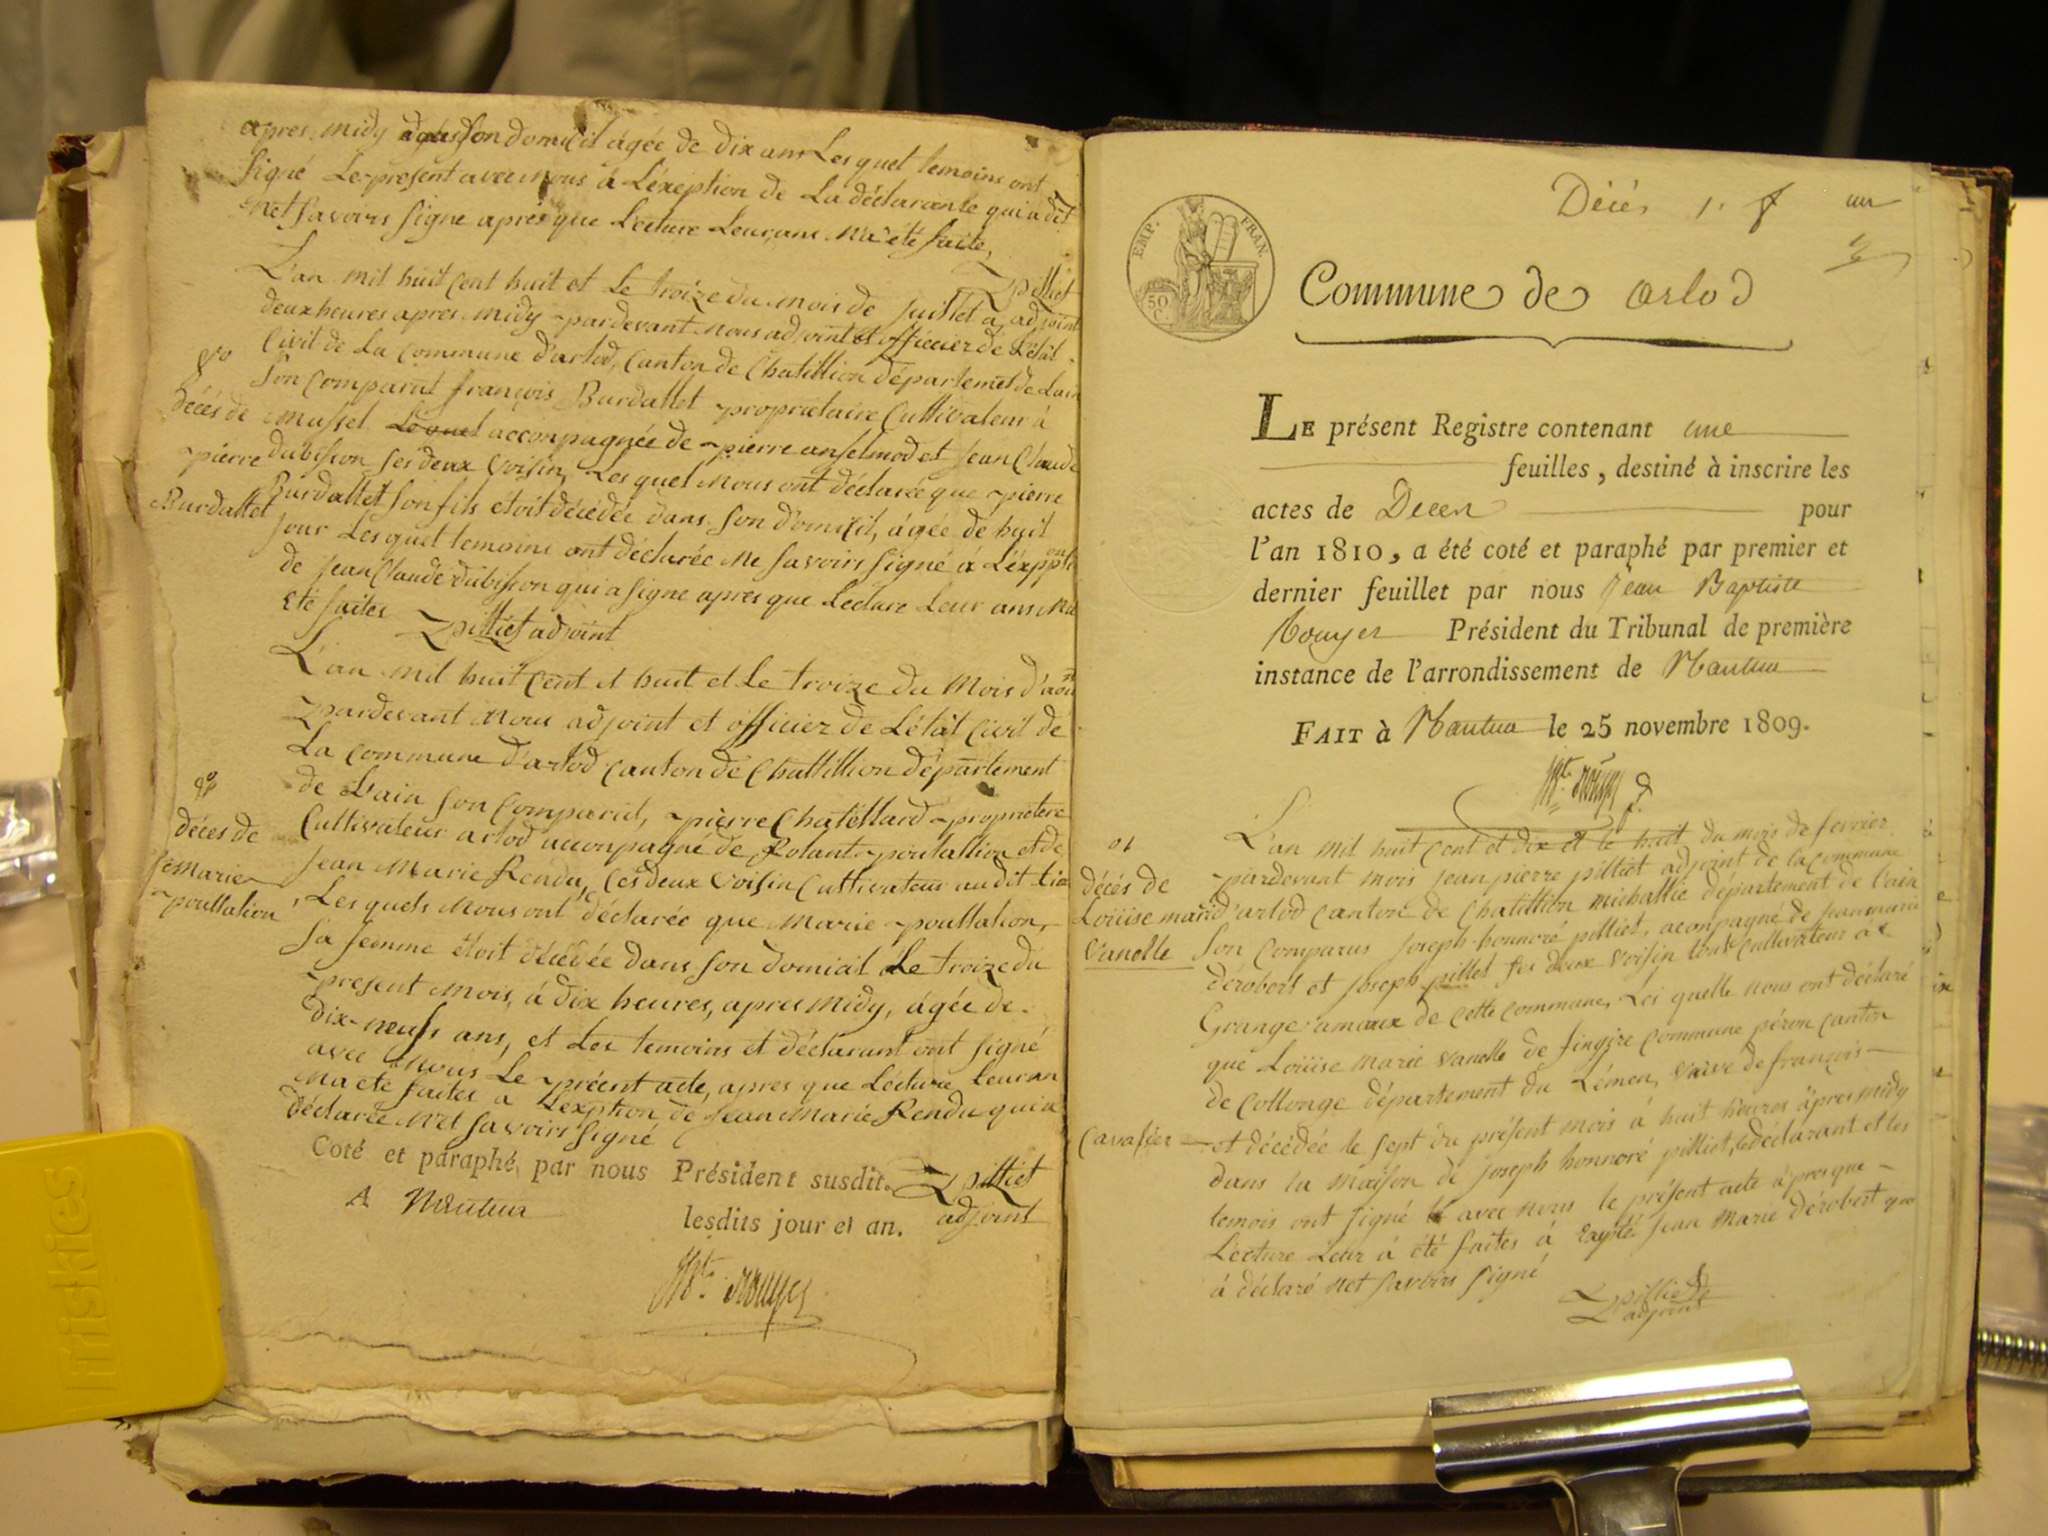 apres midy dans son domicil âgée de dix ans Lesquel temoins ont
signé Le present avec nous à L'éxeption de La déclarante qui a dit
net savoirs signe après que Lecture Leur ans n'a été faite,
Zpilliet
adjoint
L'an mil huit Cent huit et Le troize du mois de juillet a
deux heures apres midy pardevant nous adjoint et officier de L'état
Civil de La Commune d'arlod, Canton de Chatillion département de Lain
son Comparut françois Burdallet proprietaire Cultivateur à
mussel Lequel acconpagnée de pierre anselmod et jean Claude
dubission ses deux voisin, Lesquel nous ont déclarée que pierre
Burdallet son fils etoit décédée dans son domicil, âgée de huit
jour Lesquel temoins ont déclarée ne savoirs signé à L'éxpption
de jean Claude dubission qui a signe apres que Lecture Leur ans na
été faites Zpilliet adjoint
décés de
pierre
Burdallet
L'an mil huit Cent et huit et Le troize du Mois d'aout
pardevant nous adjoint et officier de L'état Civil de
La Commune d'arlod Canton de Chattillion département
de Lain son Comparut, pierre Chatellard propriétere
Cultivateur arlod acconpagné de Rolant poultallion et de
jean Marie Rendu, Ces deux voisin Cultivateur audit Lieu
Lesquels nous ont déclarée que Marie poultalion,
sa femme étoit décédée dans son domicil Le troize du
present mois, à dix heures, apres midy, âgée de
dix-neufs ans, et Les temoins et déclarant ont signé
avec nous Le présent acte, apres que Lécture Leur an
na été faites a L'exption de jean Marie Rendu qui a
déclarée net savoirs signé
décés de
Marie
poultalion
Coté et paraphé par nous Président susdit.
Zpilliet
adjoint
A Nantua lesdits jour et an.
Bte. Rouyer
Décés 1. f un
EMP. FRAN.
50 C.
Commune de arlod
LE présent Registre contenant une
feuilles, destiné à inscrire les
actes de Décès pour
l'an 1810, a été coté et paraphé par premier et
dernier feuillet par nous Jean Baptiste
Rouyer Président du Tribunal de première
instance de l'arrondissement de Nantua
FAIT à Nantua le 25 novembre 1809.
Bte. Rouyer
01
décés de
Loüise marie
Vanelle
L'an mil huit Cent et dix et le huit du mois de fevrier
pardevant mois jean pierre pilliet adjoint de la commune
d'arlod canton de Chatillion michallie département de l'ain
son Comparus joseph honnoré pilliet, aconpagné de jean marie
dérobert et joseph pillet ses deux voisin tous Cultivateur a
Grange amaux de cette commune, Les quelle nous ont déclaré
que Loüise marie vanelle de fingire Commune péron canton
de Collonge département du Lémen, vaive de françois
Cavassier et décédée le sept du présent mois à huit heures apres midy
dans la maison de joseph honnoré pilliet, le déclarant et les
temois ont signé avec nous le présent acte après que
Lecture Leur à été faites à Exepté jean marie dérobert qui
à déclaré net savoirs signé
Zpilliet
adjoint
friskies